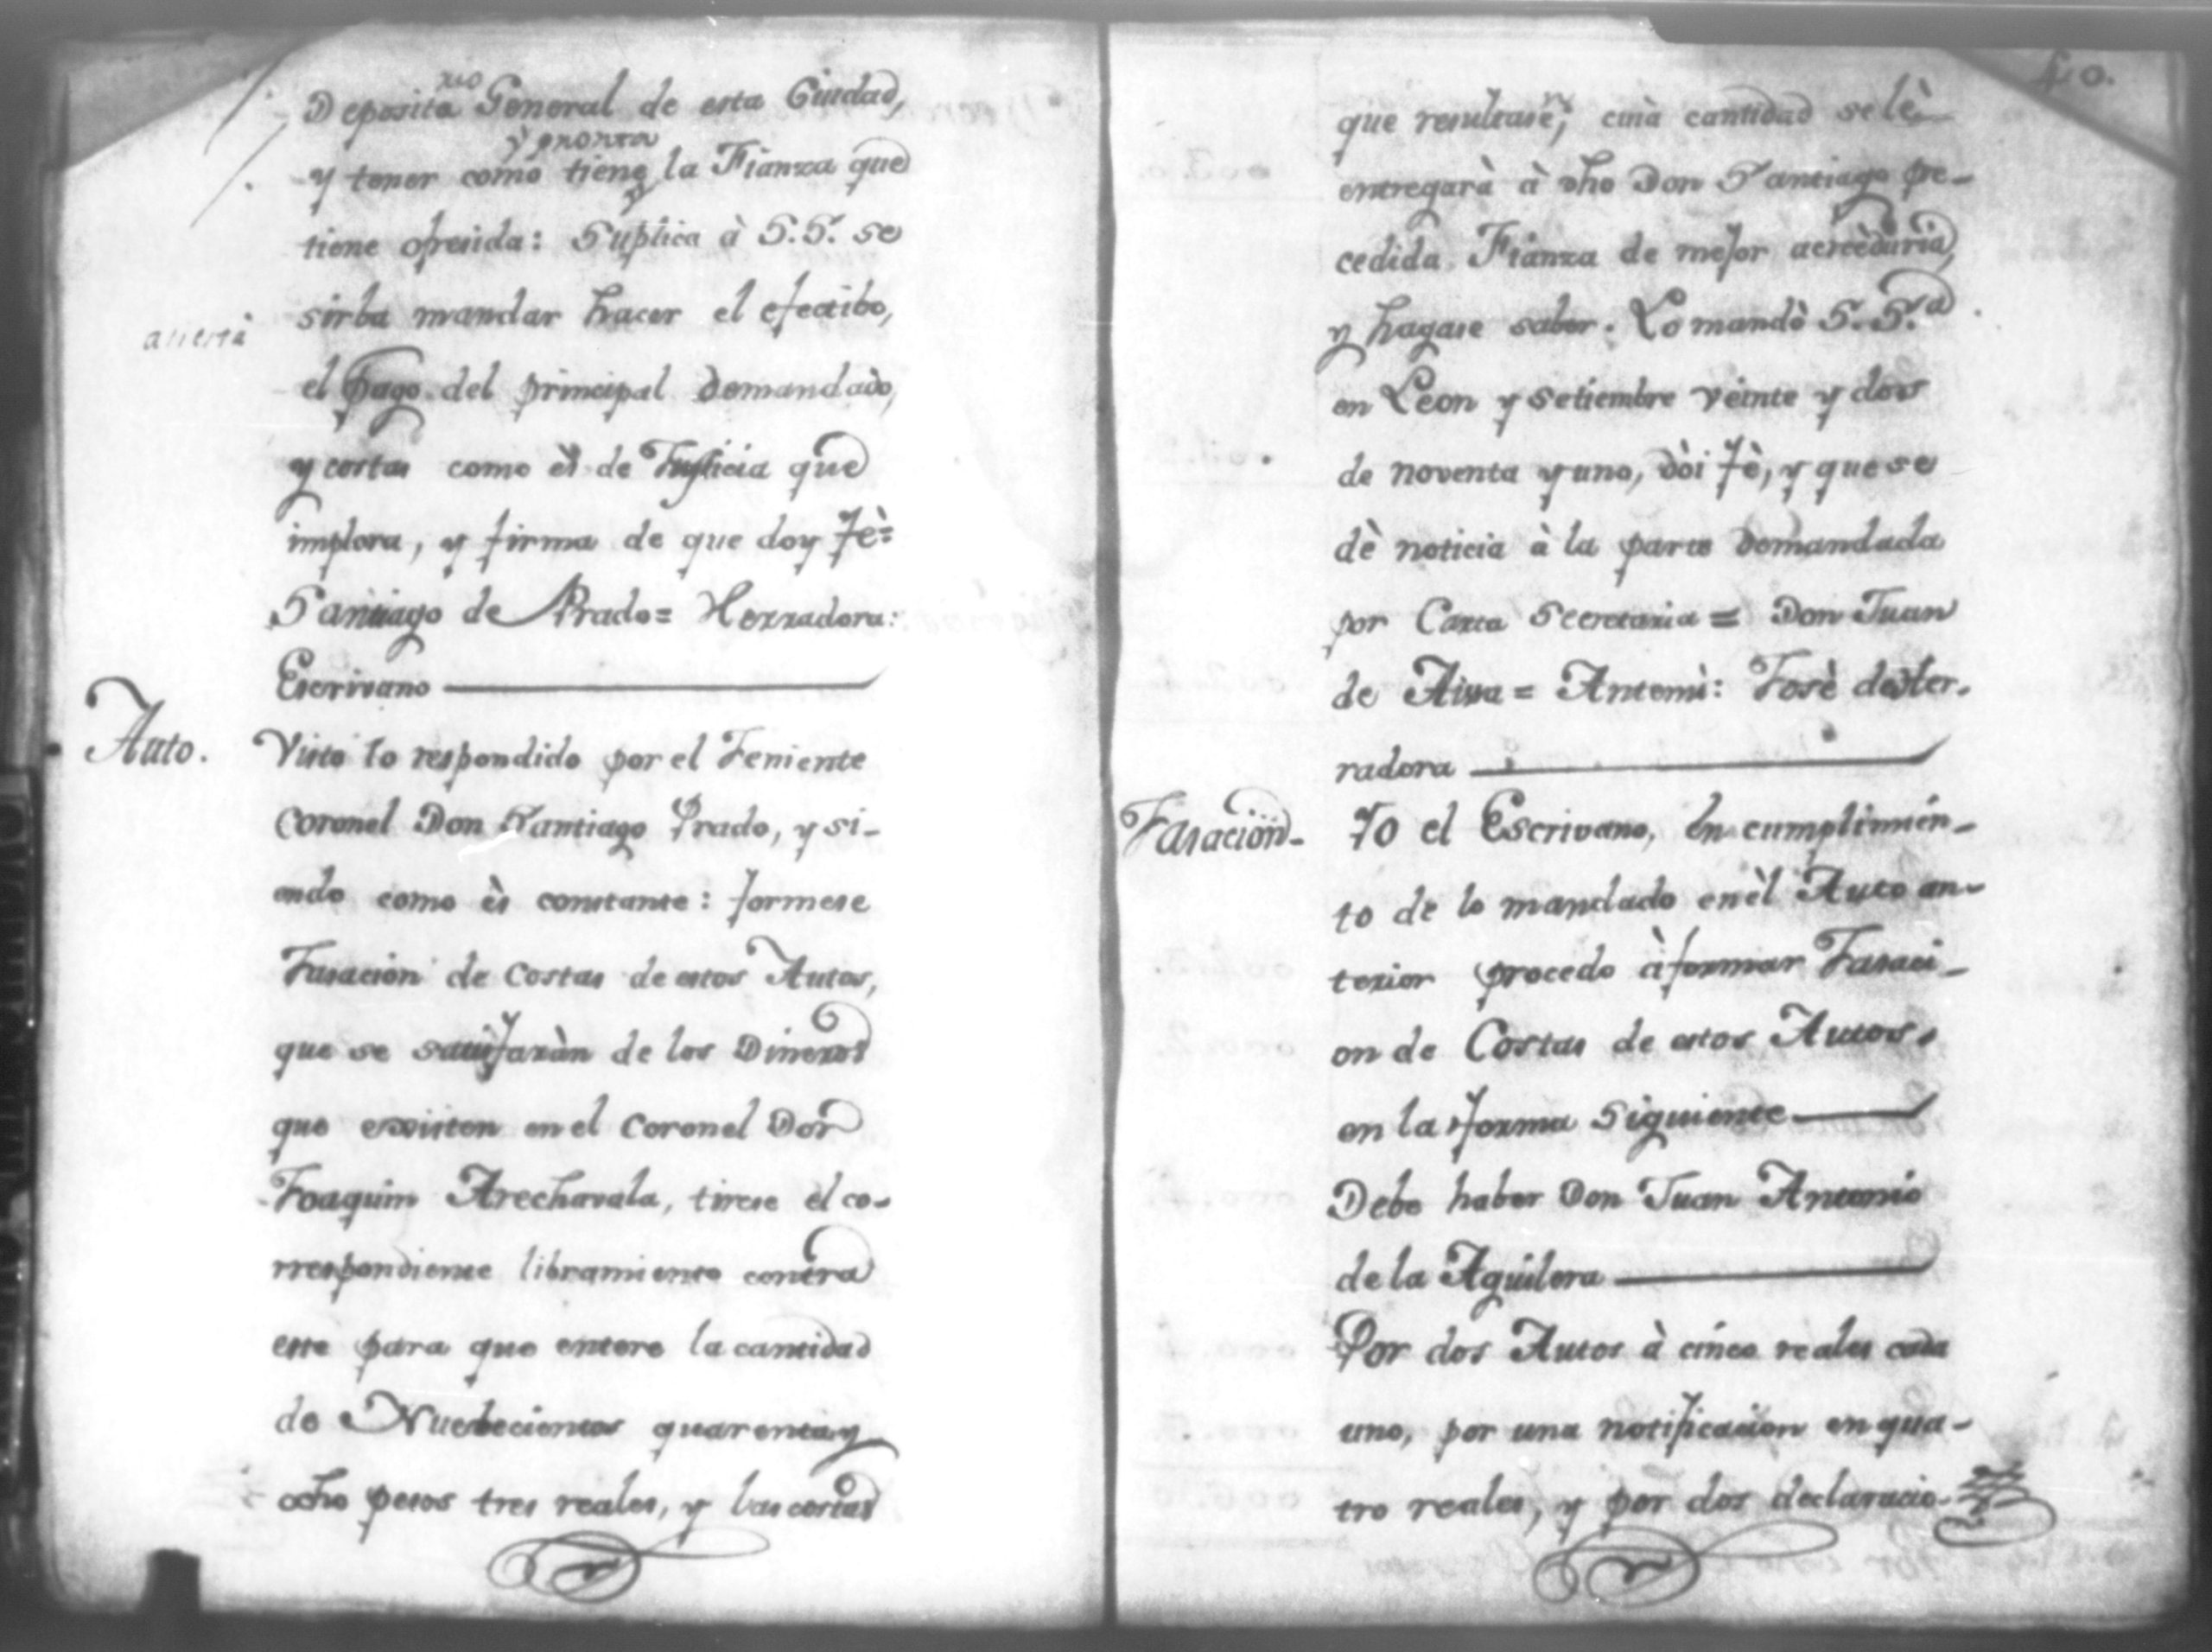 rio
Deposita General de esta Ciudad,
y pronta
y tener como tiene la Fianza que
tiene ofresida: Suplica à S.S. se
sirba mandar hacer el efectibo,
el pago del principal demandado,
y costas como ès de Justicia que
implora, y firma de que doy fè=
Santiago de Prado= Herradora:
Escrivano
Auto.
Visto lo respondido por el Teniente
Coronel Don Santiago Prado, y si-
endo como ès constante: formese
Tasacion de Costas de estos Autos,
que se satisfaràn de los Dineros
que existen en el Coronel Don
Joaquin Arechavala, tirese el co-
rrespondiente libramiento contra
este para que entere la cantidad
de Nuebecientos quarenta y
ocho pesos tres reales, y las costas
40.
que resultasen, cuià cantidad se lè
entregarà à dho Don Santiago pre-
cedida Fianza de mejor acrèduria,
y hagase saber. Lo mandò S.S.a
en Leon y Setiembre veinte y dos
de noventa y uno, dòi fè, y que se
dè noticia à la parte demandada
por Carta Secretaria = Don Juan
de Aissa = Antemi: Josè de Her-
radora
Tasacion-
Yo el Escrivano, En cumplimien-
to de lo mandado en èl Auto an-
terior procedo à formar Tasaci-
on de Costas de estos Autos,
en la forma Siguiente
Debe haber Don Juan Antonio
de la Aguilera
Por dos Autos à cinco reales cada
uno, por una notificacion en qua-
tro reales, y por dos declaracio-